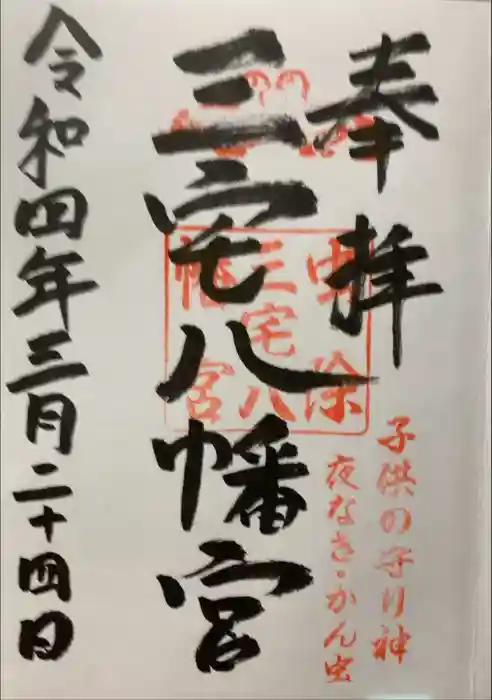 奉拝
子供の守り神
夜なき・かん虫
三宅八幡宮
虫除
三宅八
幡宮
令和四年三月二十四日